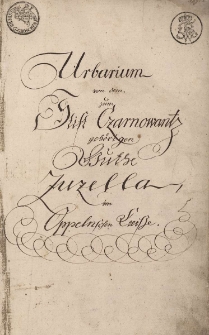 Urbarium
von dem
zum
Stift Czarnowantz
gehörigen
Guthe
Zuzella
im
Oppelnschen Creisse.